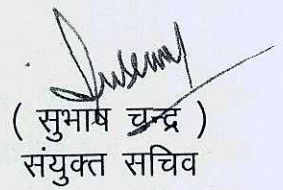 ( सुभाष चन्द्र )
संयुक्त सचिव